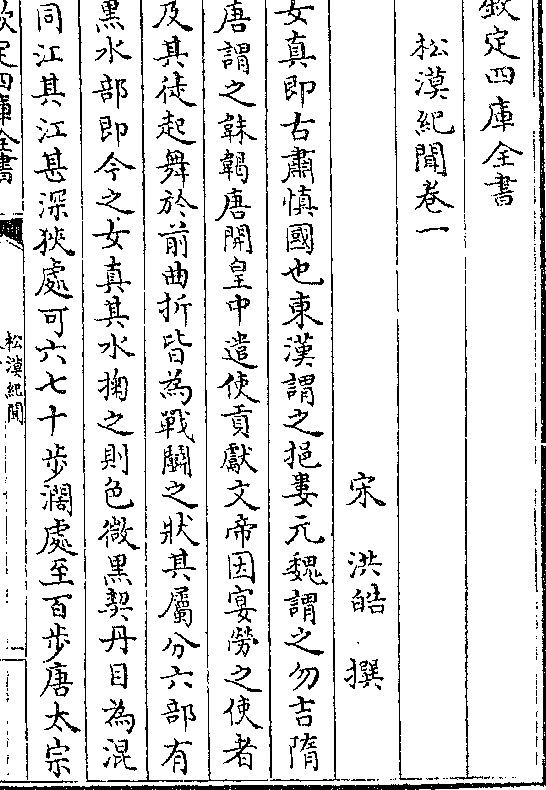 欽定四庫全書
松漠紀聞卷一
宋 洪皓 撰
女真即古肅慎國也東漢謂之挹婁元魏謂之勿吉隋
唐謂之靺鞨唐開皇中遣使貢獻文帝因宴勞之使者
及其徒起舞於前曲折皆為戰鬭之狀其屬分六部有
黑水部即今之女真其水掬之則色微黑契丹目為混
同江其江甚深狹處可六七十步濶處至百步唐太宗
欽定四庫全書
松漠紀聞
一